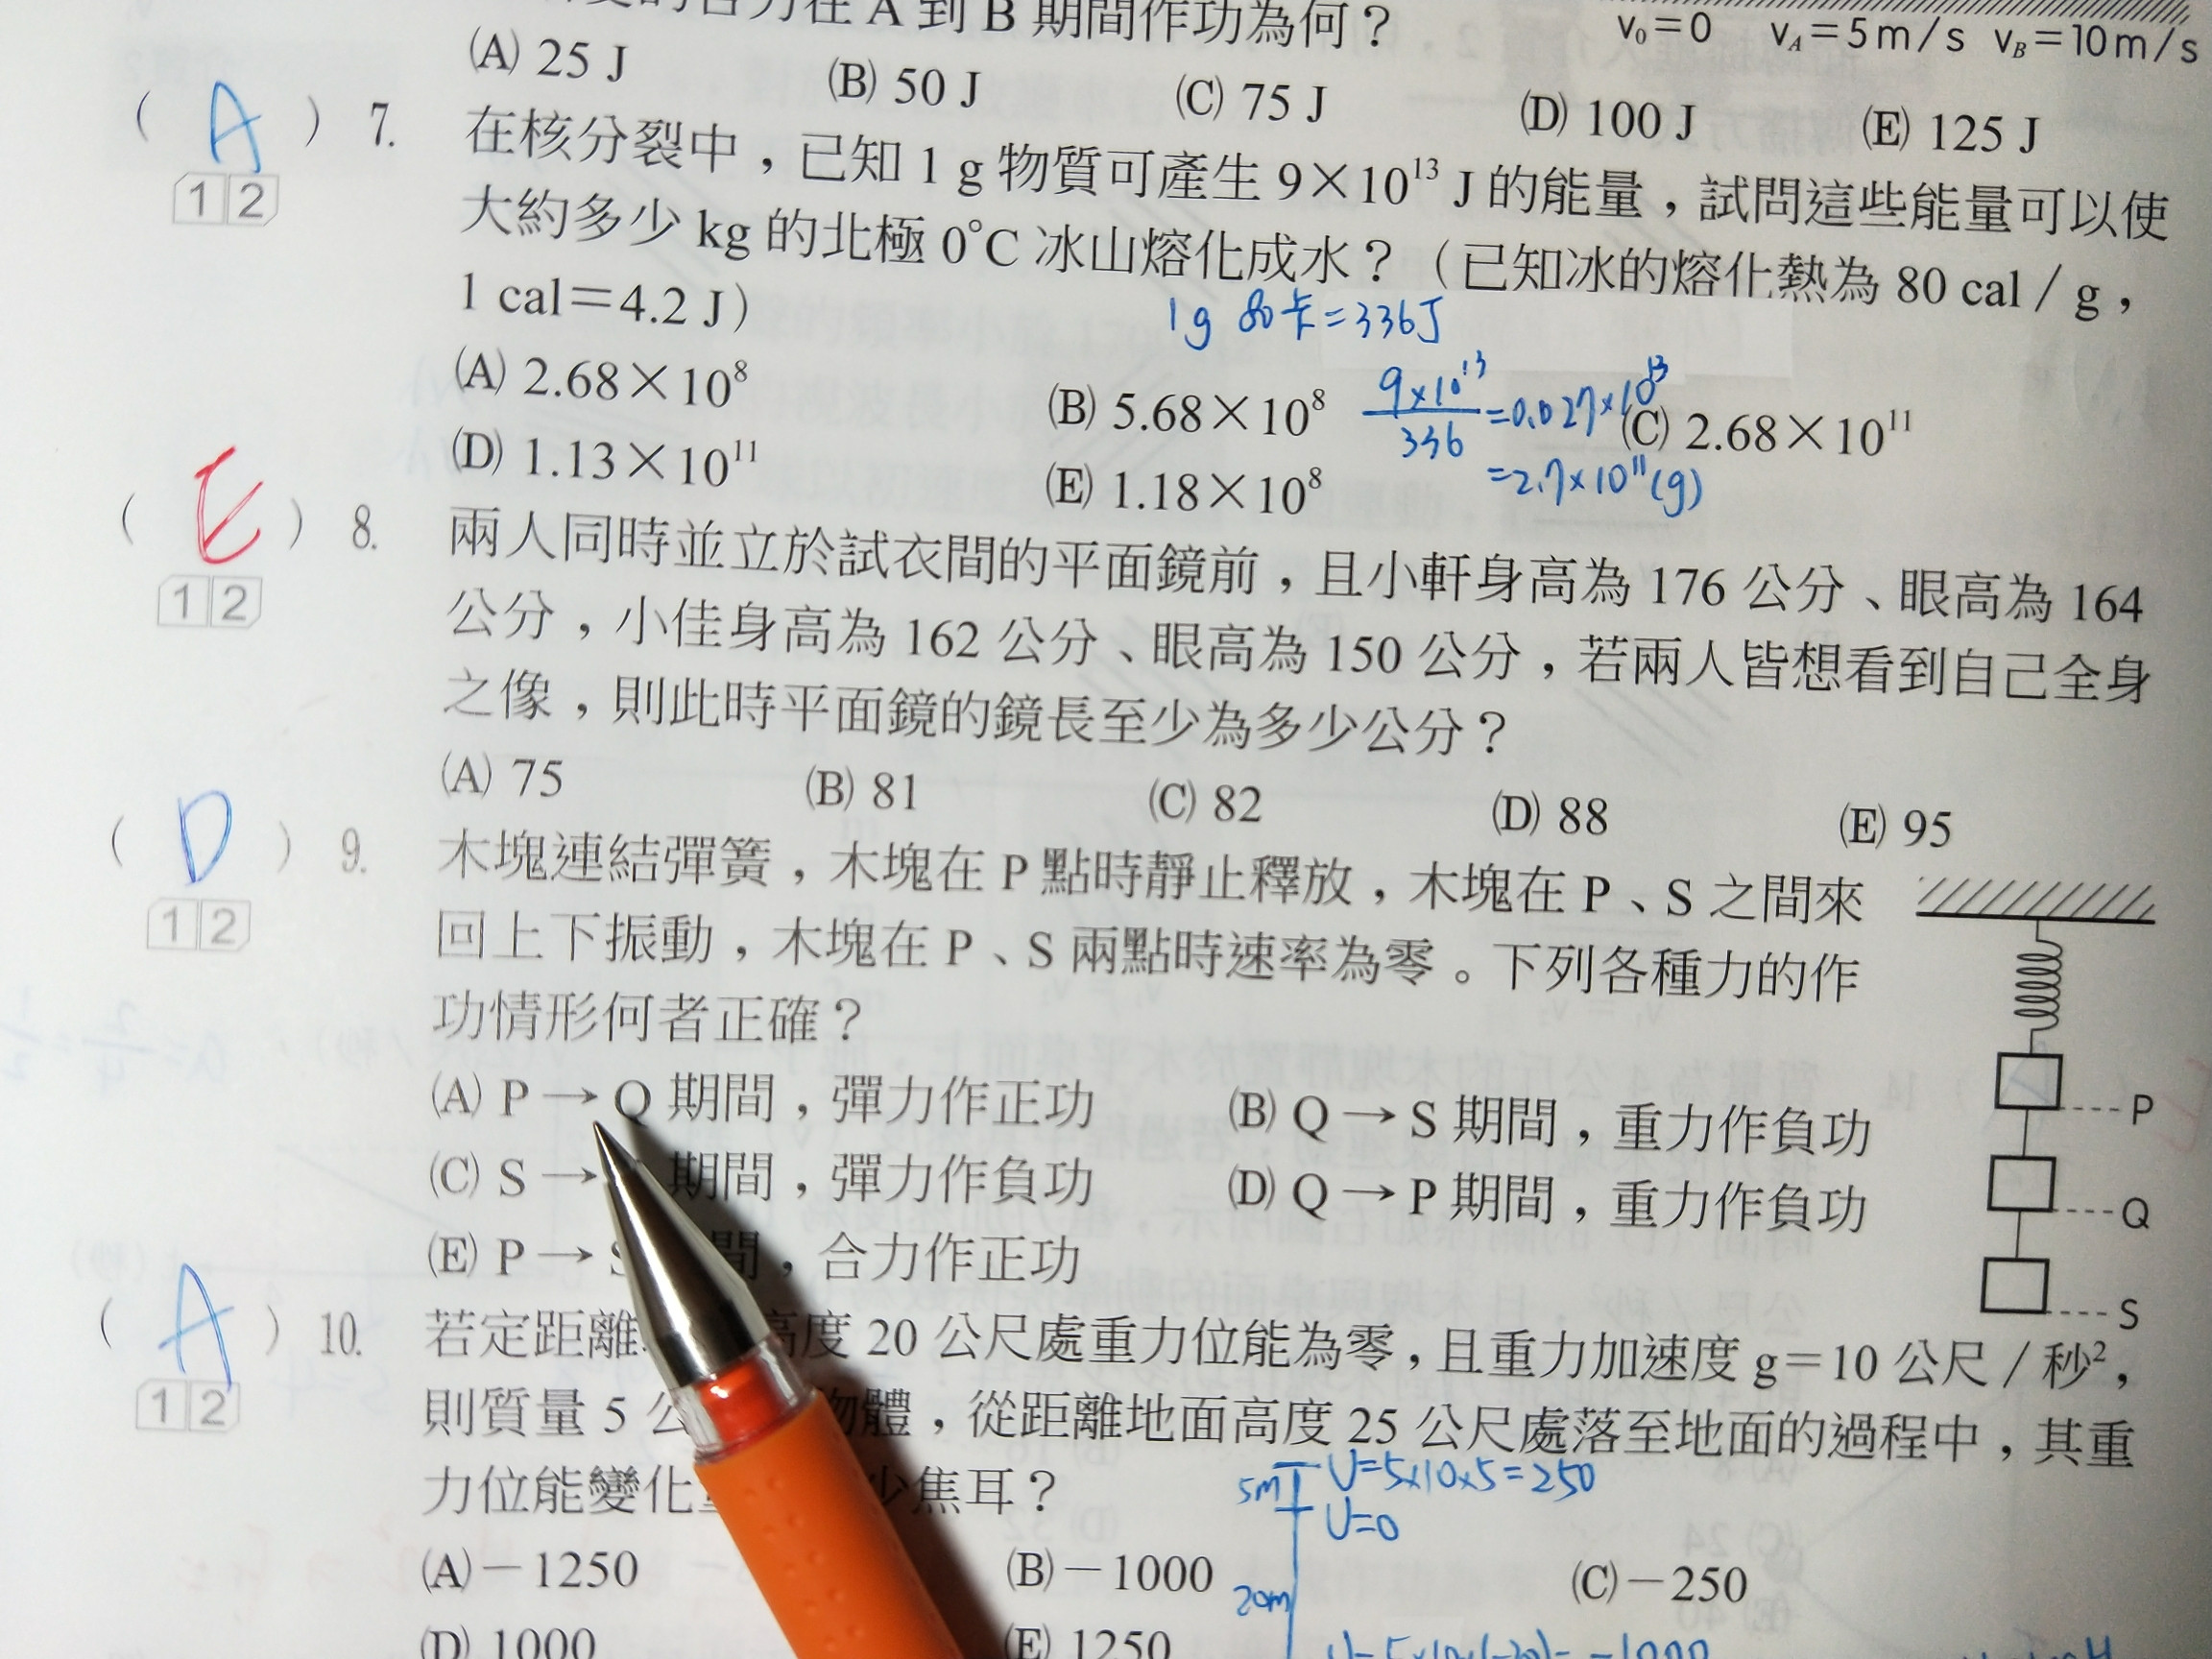 的合力在 A 到 B 期間作功為何？
v₀=0 v_A=5m/s v_B=10m/s
(A) 25 J (B) 50 J (C) 75 J (D) 100 J (E) 125 J
( A ) 7. 在核分裂中，已知 1 g 物質可產生 9×10¹³ J 的能量，試問這些能量可以使
12 大約多少 kg 的北極 0°C 冰山熔化成水？（已知冰的熔化熱為 80 cal／g，
1 cal＝4.2 J）
1g 80卡=336J
(A) 2.68×10⁸ (B) 5.68×10⁸ (C) 2.68×10¹¹
9×10¹³/336 =0.027×10¹³
(D) 1.13×10¹¹ (E) 1.18×10⁸
=2.7×10¹¹(g)
( E ) 8. 兩人同時並立於試衣間的平面鏡前，且小軒身高為 176 公分、眼高為 164
12 公分，小佳身高為 162 公分、眼高為 150 公分，若兩人皆想看到自己全身
之像，則此時平面鏡的鏡長至少為多少公分？
(A) 75 (B) 81 (C) 82 (D) 88 (E) 95
( D ) 9. 木塊連結彈簧，木塊在 P 點時靜止釋放，木塊在 P、S 之間來
12 回上下振動，木塊在 P、S 兩點時速率為零。下列各種力的作
功情形何者正確？
(A) P→Q 期間，彈力作正功 (B) Q→S 期間，重力作負功
(C) S→ 期間，彈力作負功 (D) Q→P 期間，重力作負功
(E) P→S 間，合力作正功
P
Q
S
( A ) 10. 若定距離 高度 20 公尺處重力位能為零，且重力加速度 g＝10 公尺／秒²，
12 則質量 5 公 物體，從距離地面高度 25 公尺處落至地面的過程中，其重
力位能變化 少焦耳？
5m U=5×10×5=250
U=0
(A)－1250 (B)－1000 (C)－250
20m
(D) 1000 (E) 1250